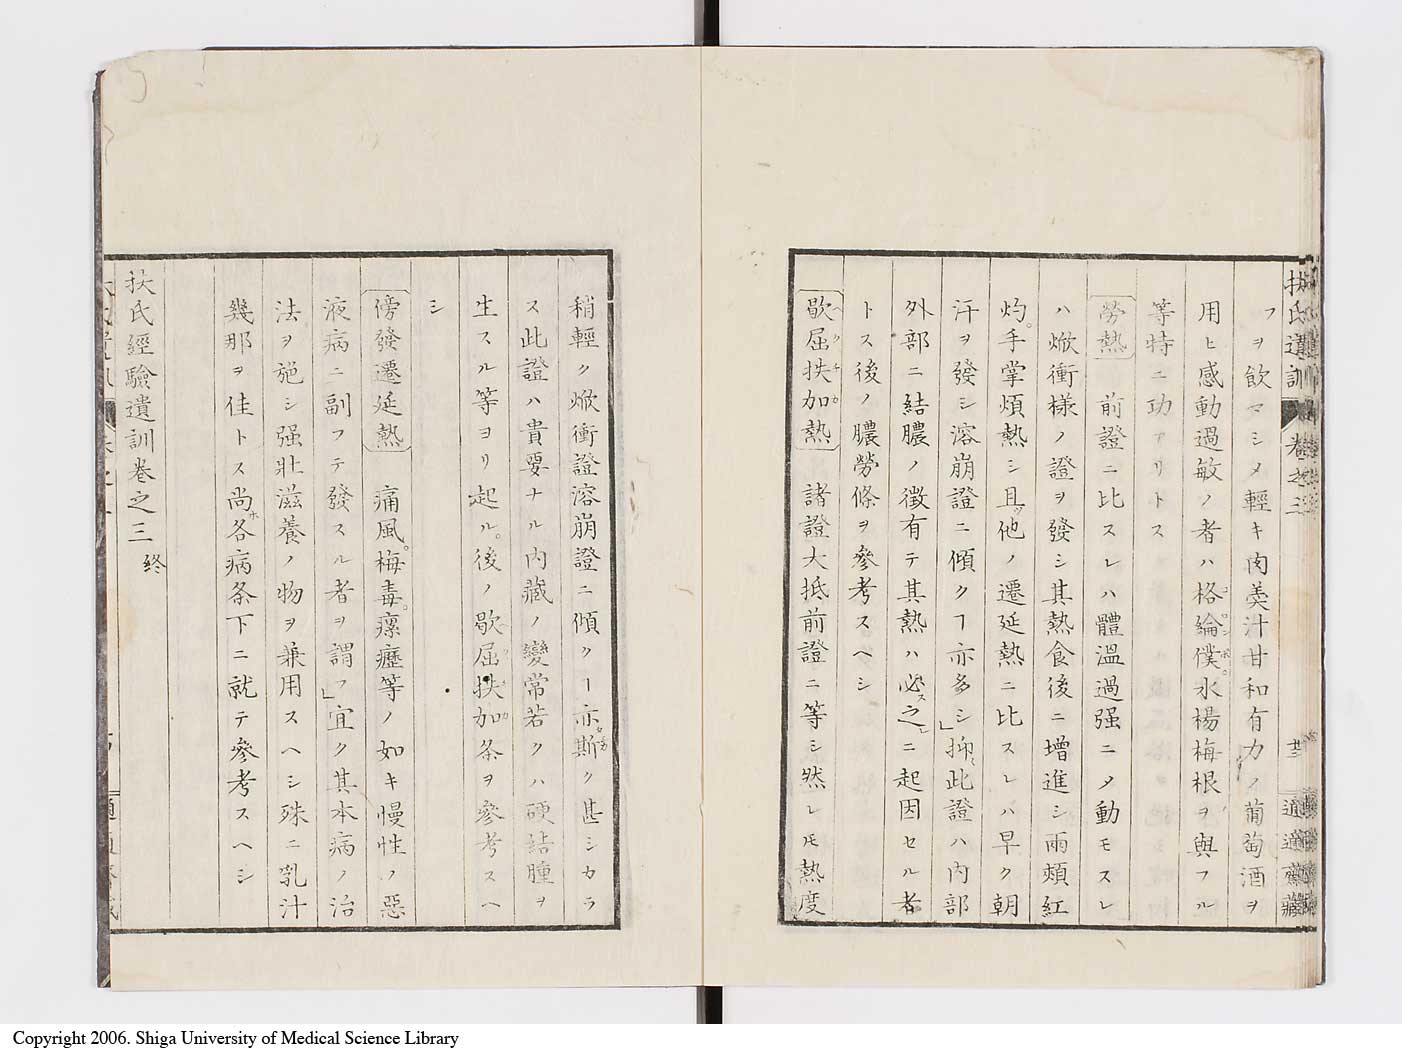 扶氏遺訓 卷之三 廿二 適適齋藏
フヲ飲マシメ輕キ肉羮汁甘和有力ノ葡萄酒ヲ
用ヒ感動過敏ノ者ハ格綸僕水楊梅根ヲ與フル
等特ニ功アリトス
勞熱 前證ニ比スレハ體温過强ニ乄動モスレ
ハ焮衝様ノ證ヲ發シ其熱食後ニ增進シ兩頰紅
灼。手掌煩熱シ且他ノ遷延熱ニ比スレバ早ク朝
汗ヲ發シ溶崩證ニ傾クヿ亦多シ」抑此證ハ内部
外部ニ結膿ノ徴有テ其熱ハ必之ニ起因セル者
トス後ノ膿勞條ヲ參考スヘシ
歇屈扶加熱 諸證大抵前證ニ等シ然レモ熱度
稍輕ク焮衝證溶崩證ニ傾クヿ亦斯ク甚シカラ
ス此證ハ貴要ナル内藏ノ變常若クハ硬結腫ヲ
生スル等ヨリ起ル。後ノ歇屈扶加条ヲ參考スヘ
シ
傍發遷延熱 痛風。梅毒。瘰癧等ノ如キ慢性ノ惡
液病ニ副フテ發スル者ヲ謂フ」宜ク其本病ノ治
法ヲ施シ强壯滋養ノ物ヲ兼用スヘシ殊ニ乳汁
幾那ヲ佳トス尚各病条下ニ就テ參考スヘシ
扶氏經驗遺訓卷之三 終
Copyright 2006. Shiga University of Medical Science Library